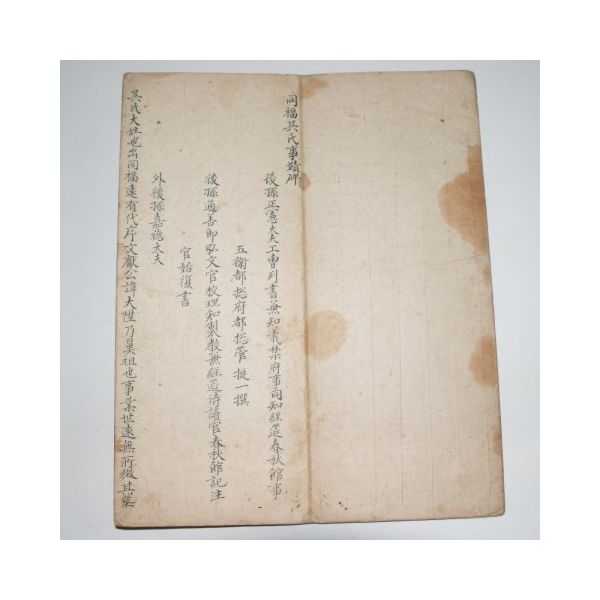 同福吳氏事蹟碑
後孫正憲大夫工曹判書兼知義禁府事同知經筵春秋館事
五衛都捴府都捴管挺一撰
後孫通善郎弘文官校理知製教兼經筵侍讀官春秋館記注
官始復書
外後孫嘉德大夫
吳氏大姓也出同福遠有代序文獻公諱大陞乃鼻祖也事業世遠無所徵其墓